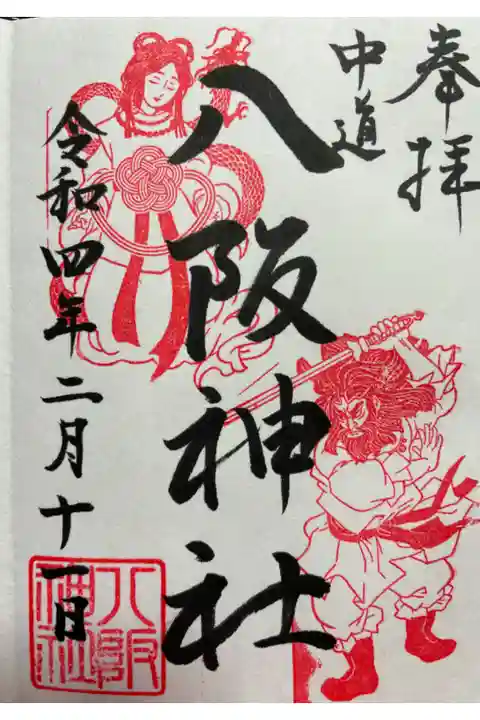 奉拝
中道
八阪神社
令和四年二月十一日
八阪
神社